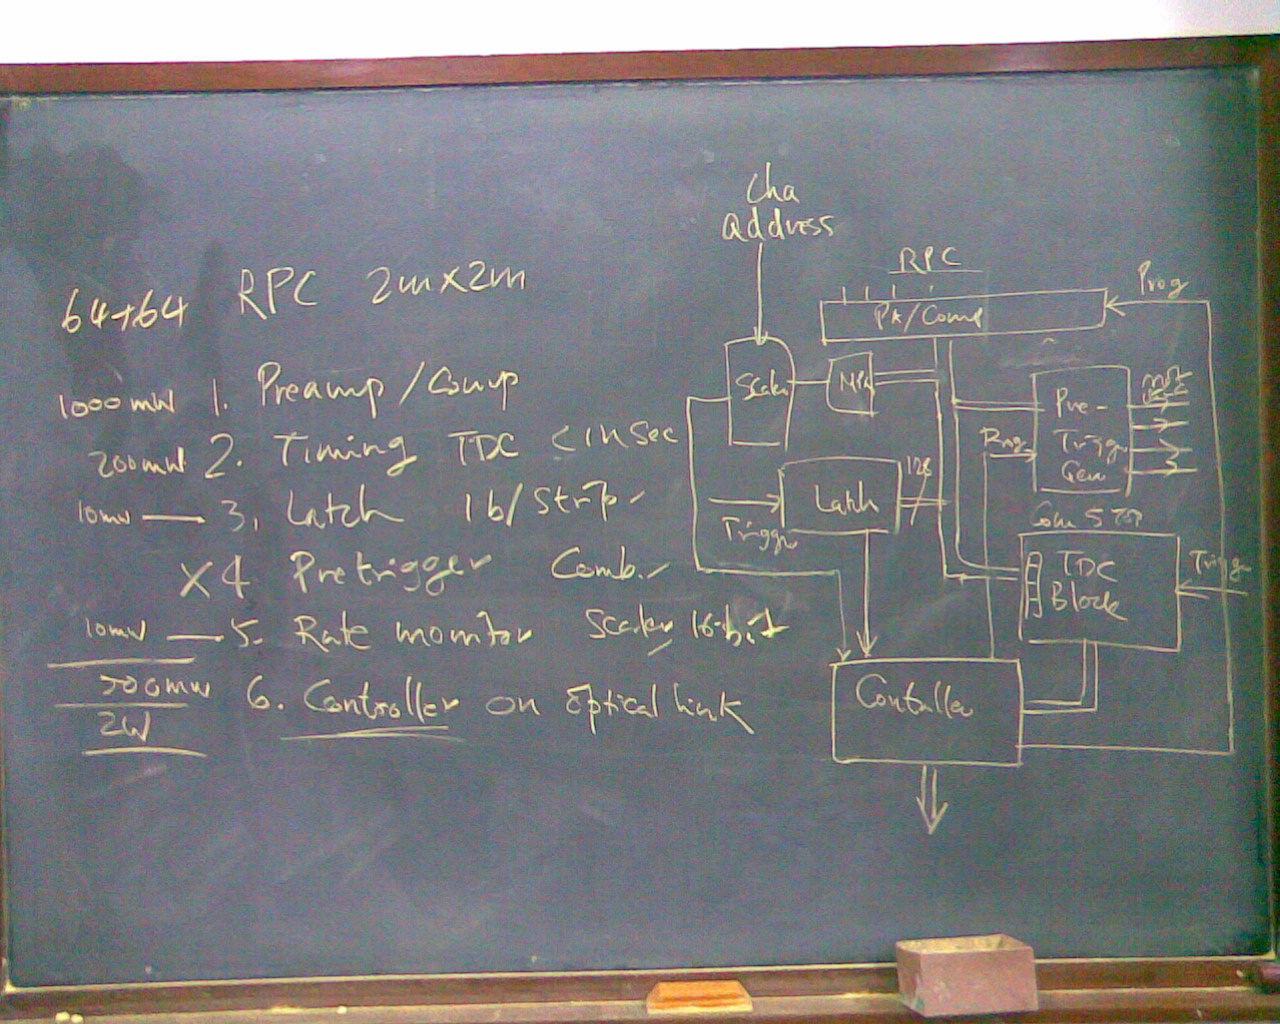 64+64 RPC 2m×2m
1000mW 1. Preamp/Comp
200mW 2. Timing TDC < 1nSec
10mW 3. Latch 1b/Strip
×4 Pretrigger Comb.
10mW 5. Rate monitor Scaler 16-bit
2W 6. Controller on optical link
Cha
address
RPC
PA/Comp
Prog
Scaler
Pre-
Trigger
Gen
Latch
128
Trigger
TDC
Block
Trigg
Controller